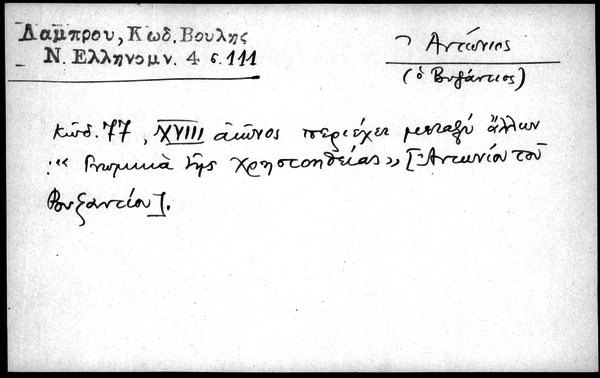 Λαμπρου, Κωδ. Βουλης
Ν. Ελληνομν. 4 σ. 111
Ἀντώνιος
(ὁ Βυζάντιος)
Κώδ. 77, XVIII αἰῶνος περιέχει μεταξὺ ἄλλων
: "Γνωμικὰ τῆς χρηστοηθείας" [Ἀντωνίου τοῦ
Βυζαντίου].